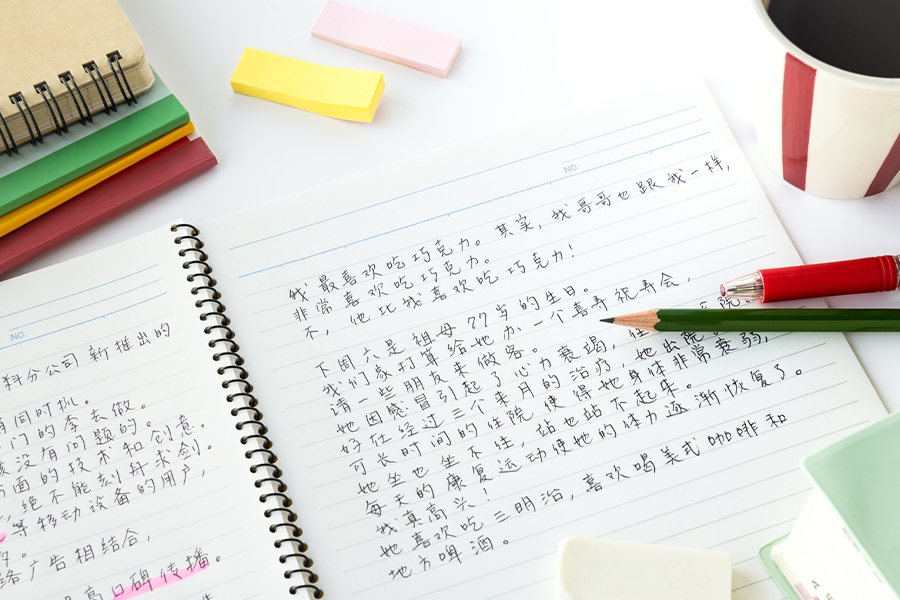 NO.
料分公司新推出的
月同时扒。
门的季去做。
没有问题的。
方面的技术和创意，
，绝不能刻舟求剑。
等移动设备的用户，
络广告相结合，
高口碑传播。
NO.
我最喜欢吃巧克力。其实，我哥哥也跟我一样，
非常喜欢吃巧克力。
不，他比我喜欢吃巧克力！
下周六是祖母77岁的生日。
我们家打算给她办一个喜寿祝寿会，
请一些朋友来做客。
她因感冒引起了心力衰竭，住
好在经过三个来月的治疗，她出院
可长时间的住院使得她身体非常衰弱，
她坐也坐不住，站也站不起来。
每天的康复运动使她的体力逐渐恢复了。
我真高兴！
她喜欢吃三明治，喜欢喝美式咖啡和
地方啤酒。